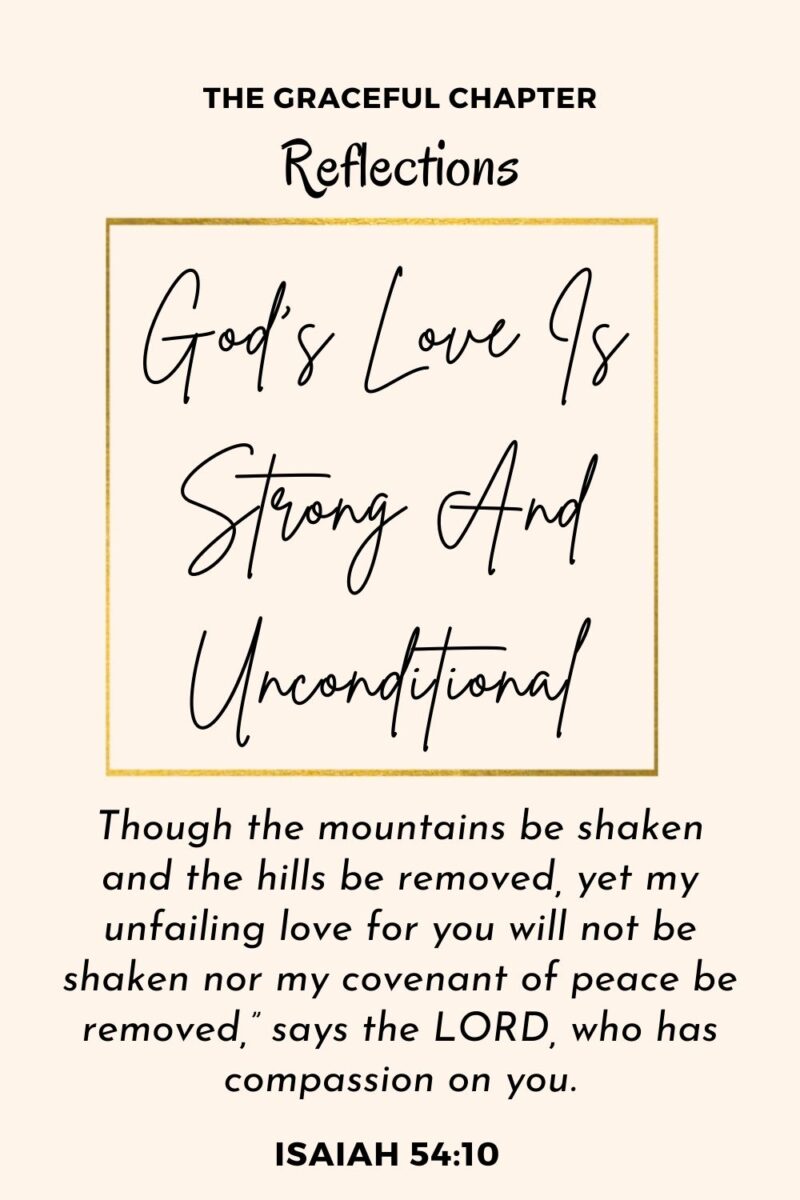 THE GRACEFUL CHAPTER
Reflections
God's Love Is
Strong And
Unconditional
Though the mountains be shaken
and the hills be removed, yet my
unfailing love for you will not be
shaken nor my covenant of peace be
removed,” says the LORD, who has
compassion on you.
ISAIAH 54:10